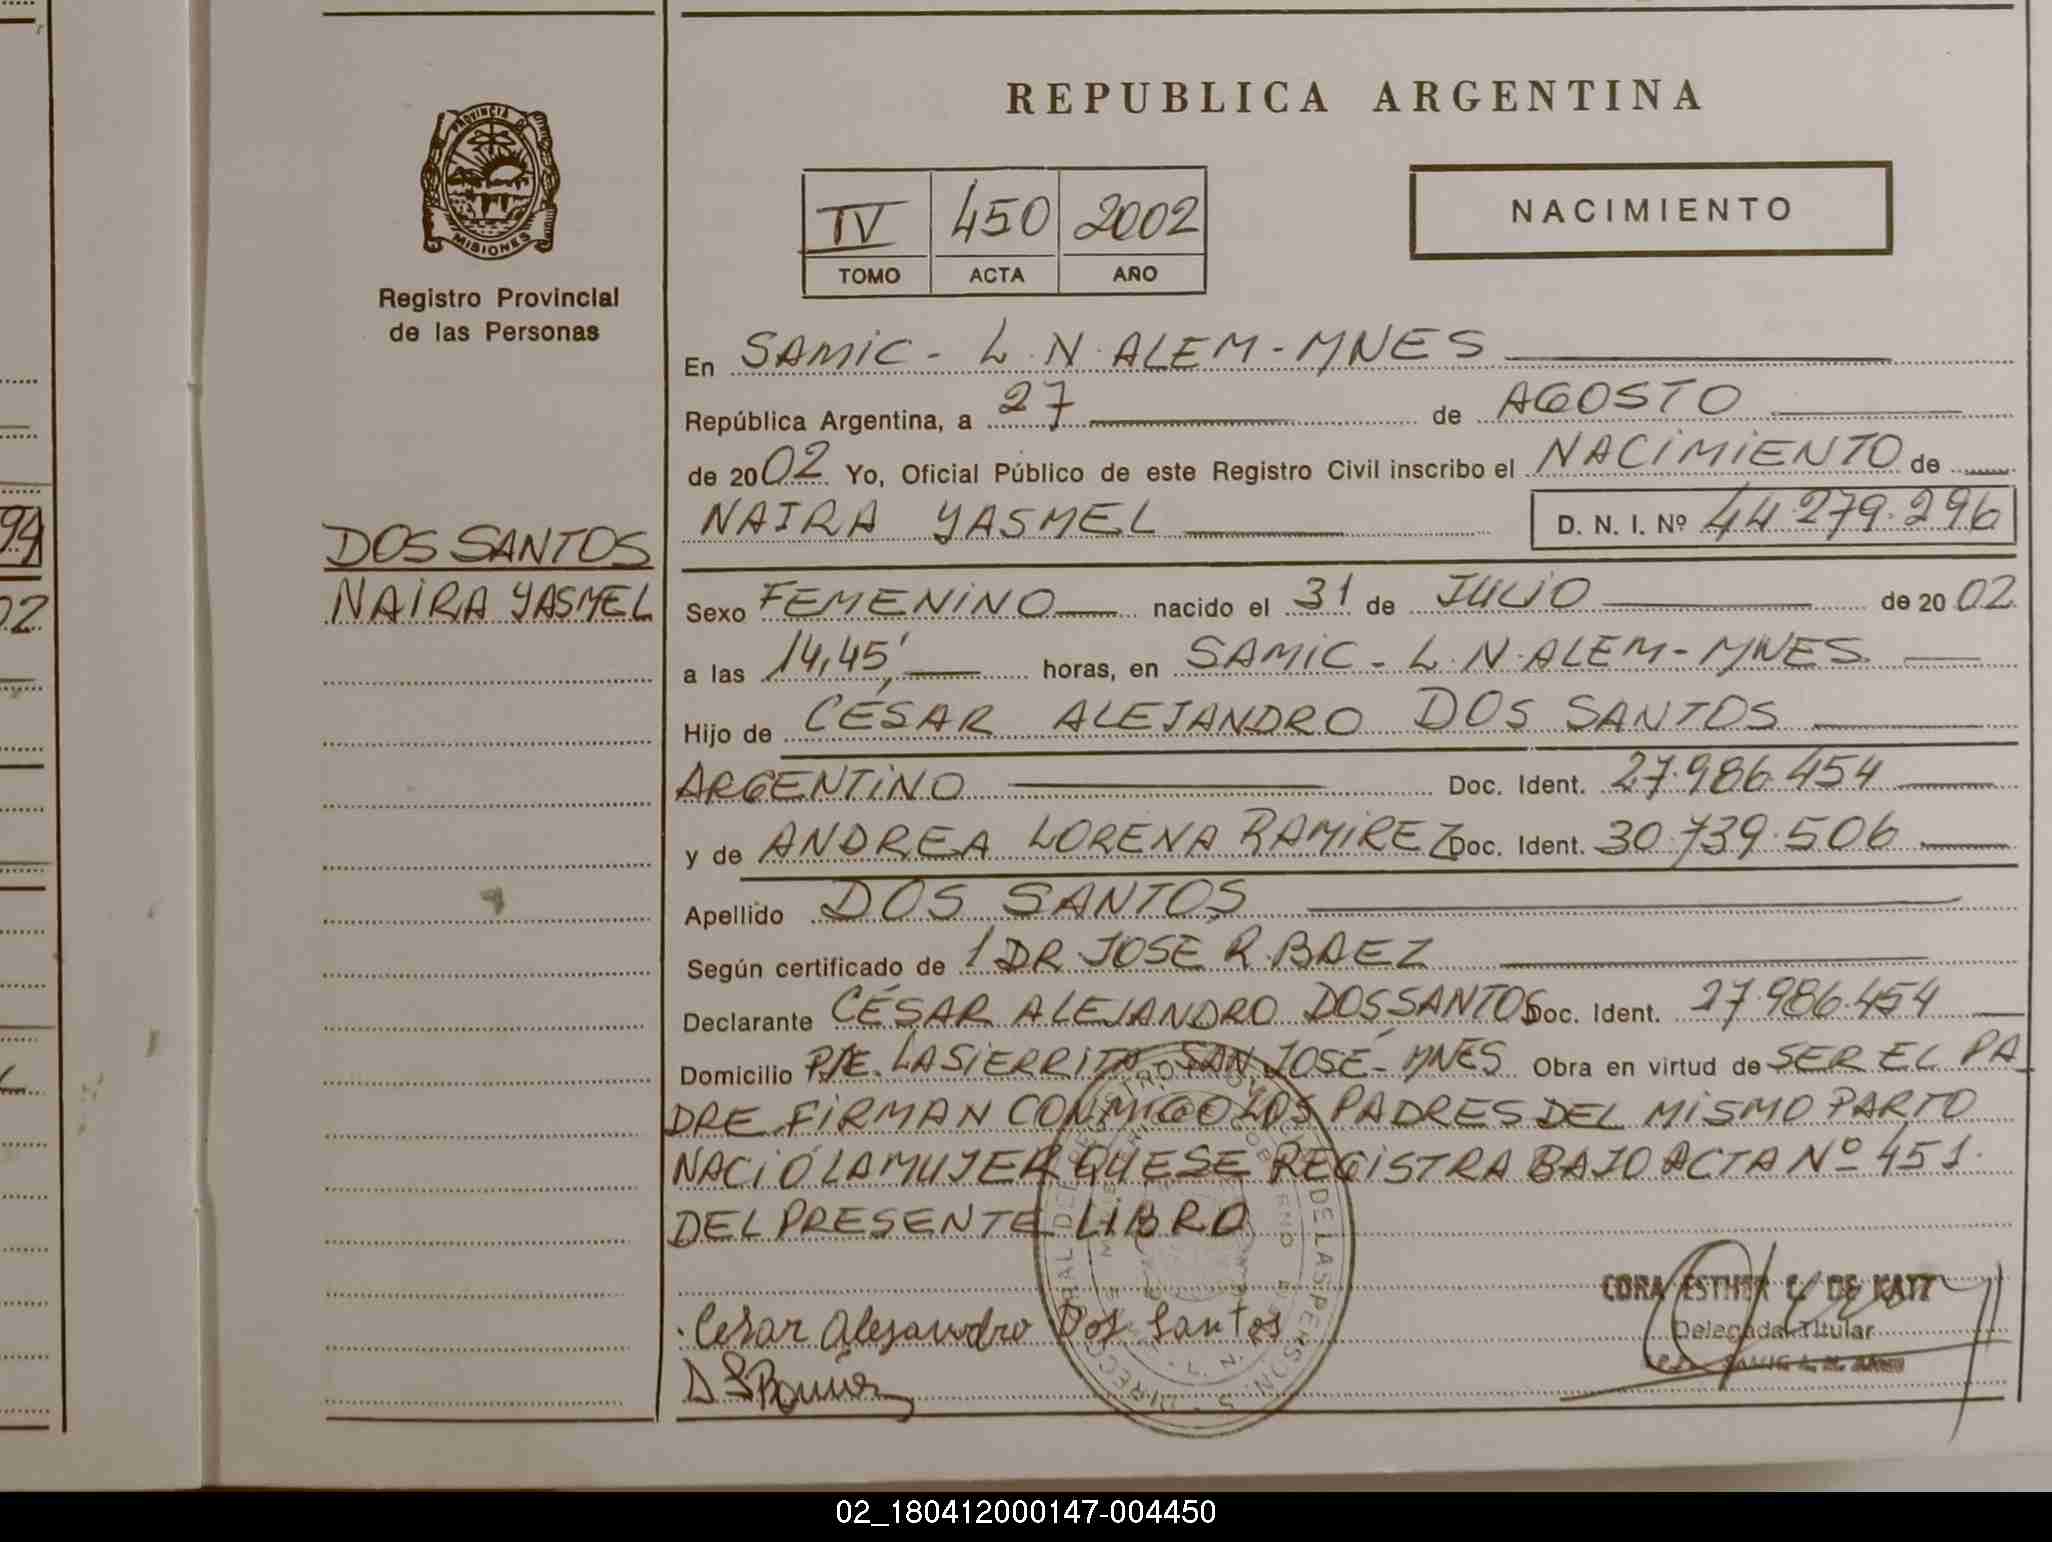 REPUBLICA ARGENTINA
PROVINCIA DE MISIONES
Registro Provincial
de las Personas
IV 450 2002
TOMO ACTA AÑO
NACIMIENTO
En SAMIC - L.N. ALEM - MNES
República Argentina, a 27 de AGOSTO
de 2002 Yo, Oficial Público de este Registro Civil inscribo el NACIMIENTO de
NAIRA YASMEL D. N. I. Nº 44.279.296
DOS SANTOS
NAIRA YASMEL
Sexo FEMENINO nacido el 31 de JULIO de 2002
a las 14,45' horas, en SAMIC - L.N. ALEM - MNES
Hijo de CÉSAR ALEJANDRO DOS SANTOS
ARGENTINO Doc. Ident. 27.986.454
y de ANDREA LORENA RAMIREZ Doc. Ident. 30.739.506
Apellido DOS SANTOS
Según certificado de 1 DR JOSE R. BAEZ
Declarante CÉSAR ALEJANDRO DOS SANTOS Doc. Ident. 27.986.454
Domicilio PJE. LA SIERRITA SAN JOSÉ - MNES Obra en virtud de SER EL PA
DRE FIRMAN CONMIGO LOS PADRES DEL MISMO PARTO
NACIÓ LA MUJER QUE SE REGISTRA BAJO ACTA Nº 451.
DEL PRESENTE LIBRO
CORA ESTHER C. DE KATZ
Delegada Titular
Cesar Alejandro Dos Santos
94
02
02_180412000147-004450